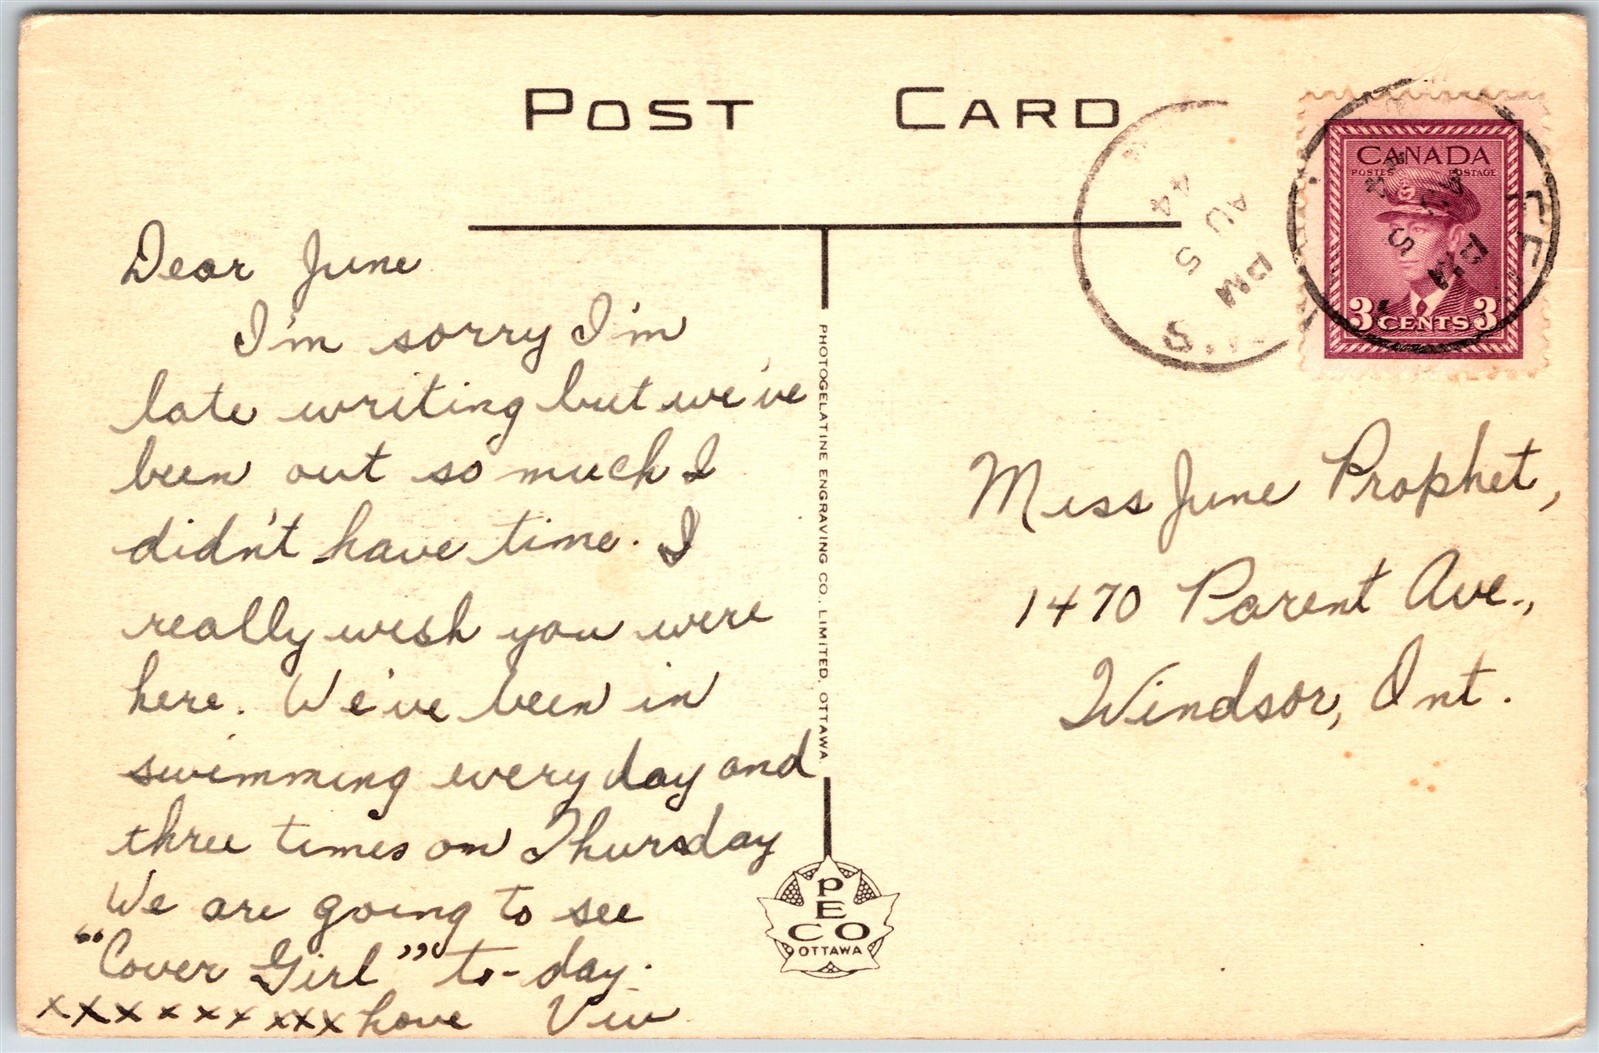 POST CARD
Dear June
I'm sorry I'm
late writing but we've
been out so much I
didn't have time. I
really wish you were
here. We've been in
swimming every day and
three times on Thursday
We are going to see
"Cover Girl" to-day.
xxxxxxxxx love Viv
PHOTOGELATINE ENGRAVING CO., LIMITED, OTTAWA
PECO
OTTAWA
PM
AU 5
44
CANADA
POSTES POSTAGE
3 CENTS 3
Miss June Prophet,
1470 Parent Ave.,
Windsor, Ont.